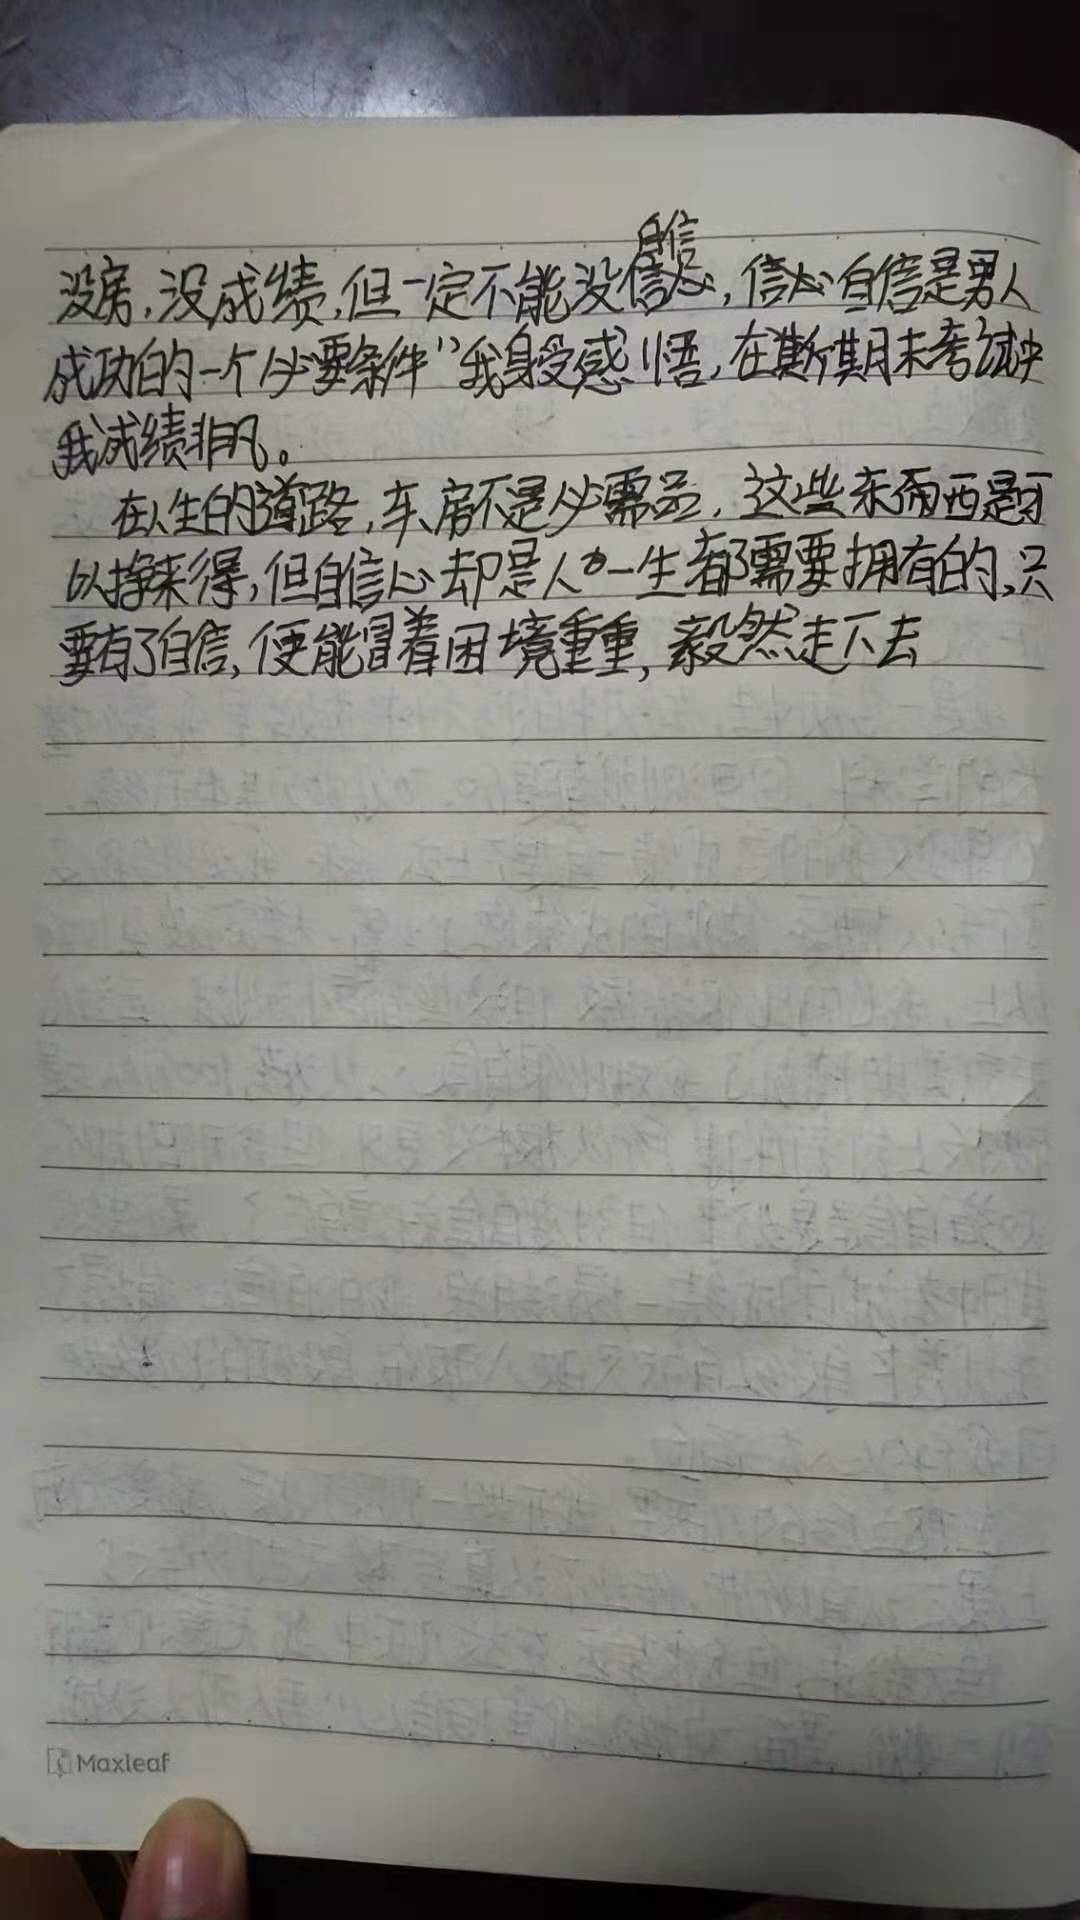 自信
没房,没成绩,但一定不能没信心,信心自信是男人
成功的一个必要条件"我身受感悟,在期末考试中
我成绩非凡。
在人生的道路,车、房不是必需品,这些东西是可
以挣来得,但自信心却是人一生都需要拥有的,只
要有了自信,便能冒着困境重重,毅然走下去
Maxleaf